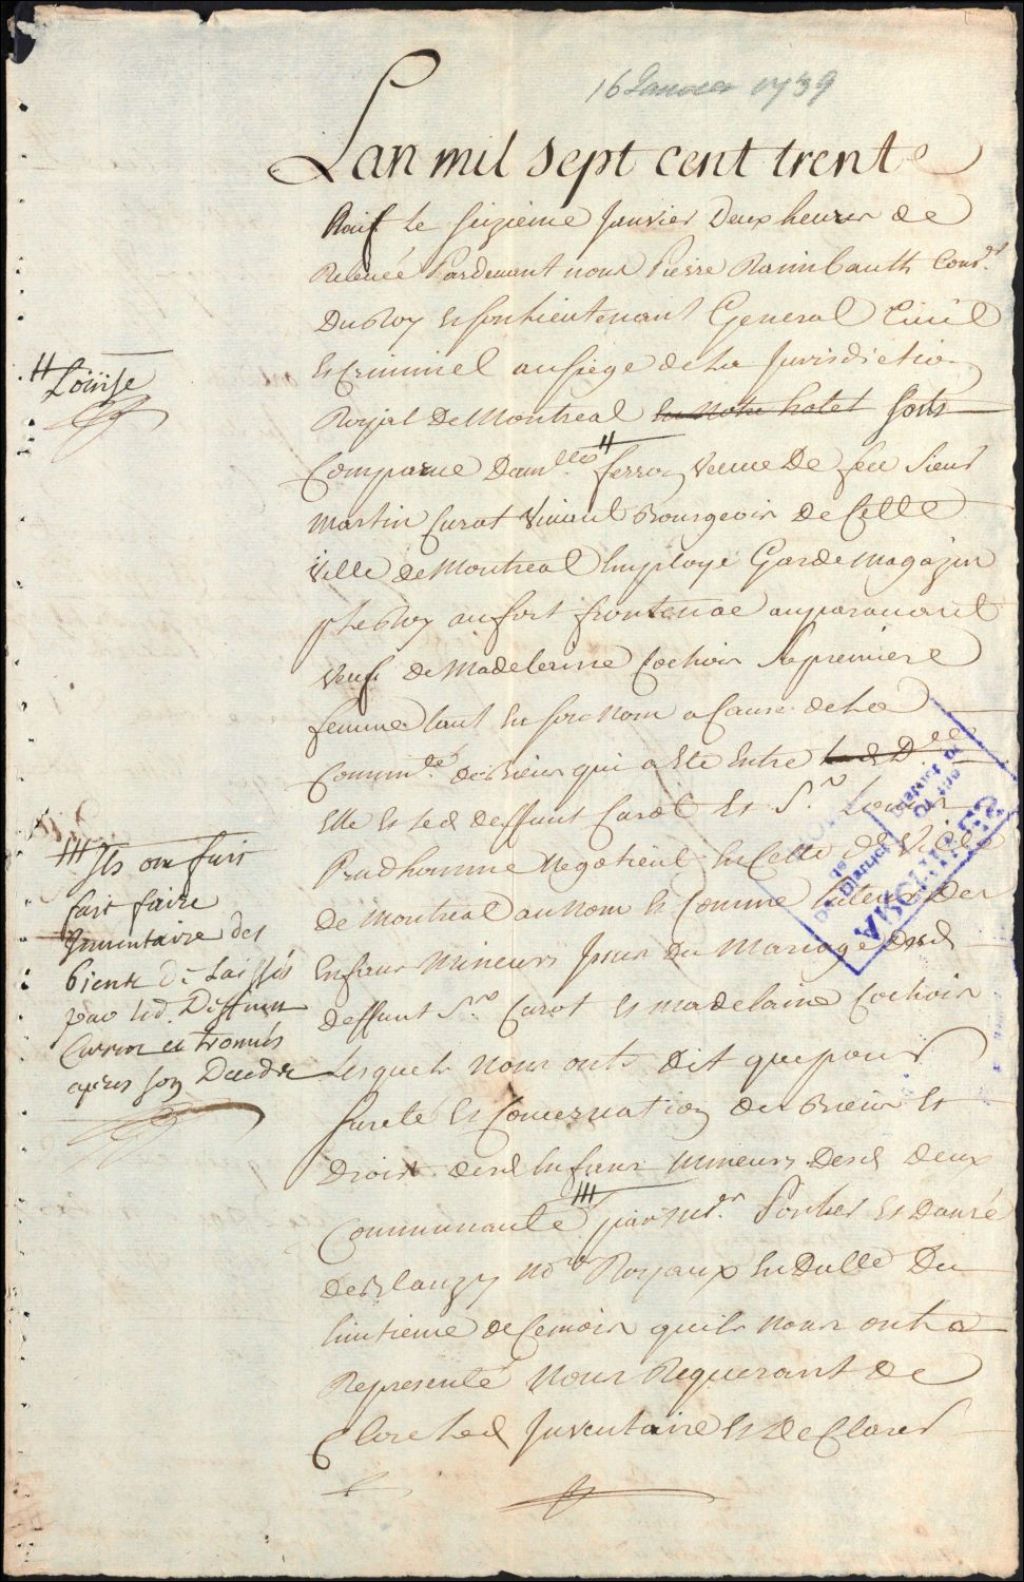 16 Janvier 1739
Lan mil sept cent trente
Neuf le seizieme Janvier Deux heures de
Relevée Pardevant nous Pierre Raimbault Cons.er
Du Roy et son Lieutenant General Civil
et Criminel au siege de la Jurisdiction
Royal De Montreal en notre hotel sont
Comparue Dam.lle # ferron veuve De feu Sieur
Martin Curot vivant Bourgeois de Cette
Ville de Montreal Employé Garde Magazin
p. le Roy au fort frontenac auparavant
veuf de Madeleinne Cochois sa premiere
femme tant en son nom a Cause de la
Comm.té de Biens qui a Eté entre
Elle et led deffunt Curot et S.r
Prudhomme Negotient en Cette de Ville
de Montreal au nom et Comme tuteur des
Enfans Mineurs Issus Du Mariage Dud
deffunt S.r Curot et Madelaine Cochois
Lesquels Nous onts Dit que pour
sureté et Concervation des Biens et
Droits desd Enfans Mineurs Desd deux
Communauté par M.er Porlier et Danré
De Blanzy No.res Royaux en Datte Du
huitieme de Ce mois quils nous ont
Representé Nous Requerant de
Clore Led Inventaire et De Clarer
# Louise
Ils ont fait
fair faire
Inventaire des
biens De Laissés
par led. Deffunt
Currot et trouvés
apres son Deceds